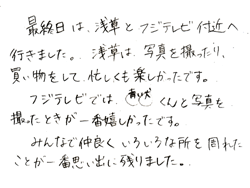 最終日は、浅草とフジテレビ付近へ
行きました。浅草は、写真を撮ったり、
買い物をして、忙しくも楽しかったです。
フジテレビでは、くんと写真を
撮ったときが一番嬉しかったです。
みんなで仲良くいろいろな所を周れた
ことが一番思い出に残りました。